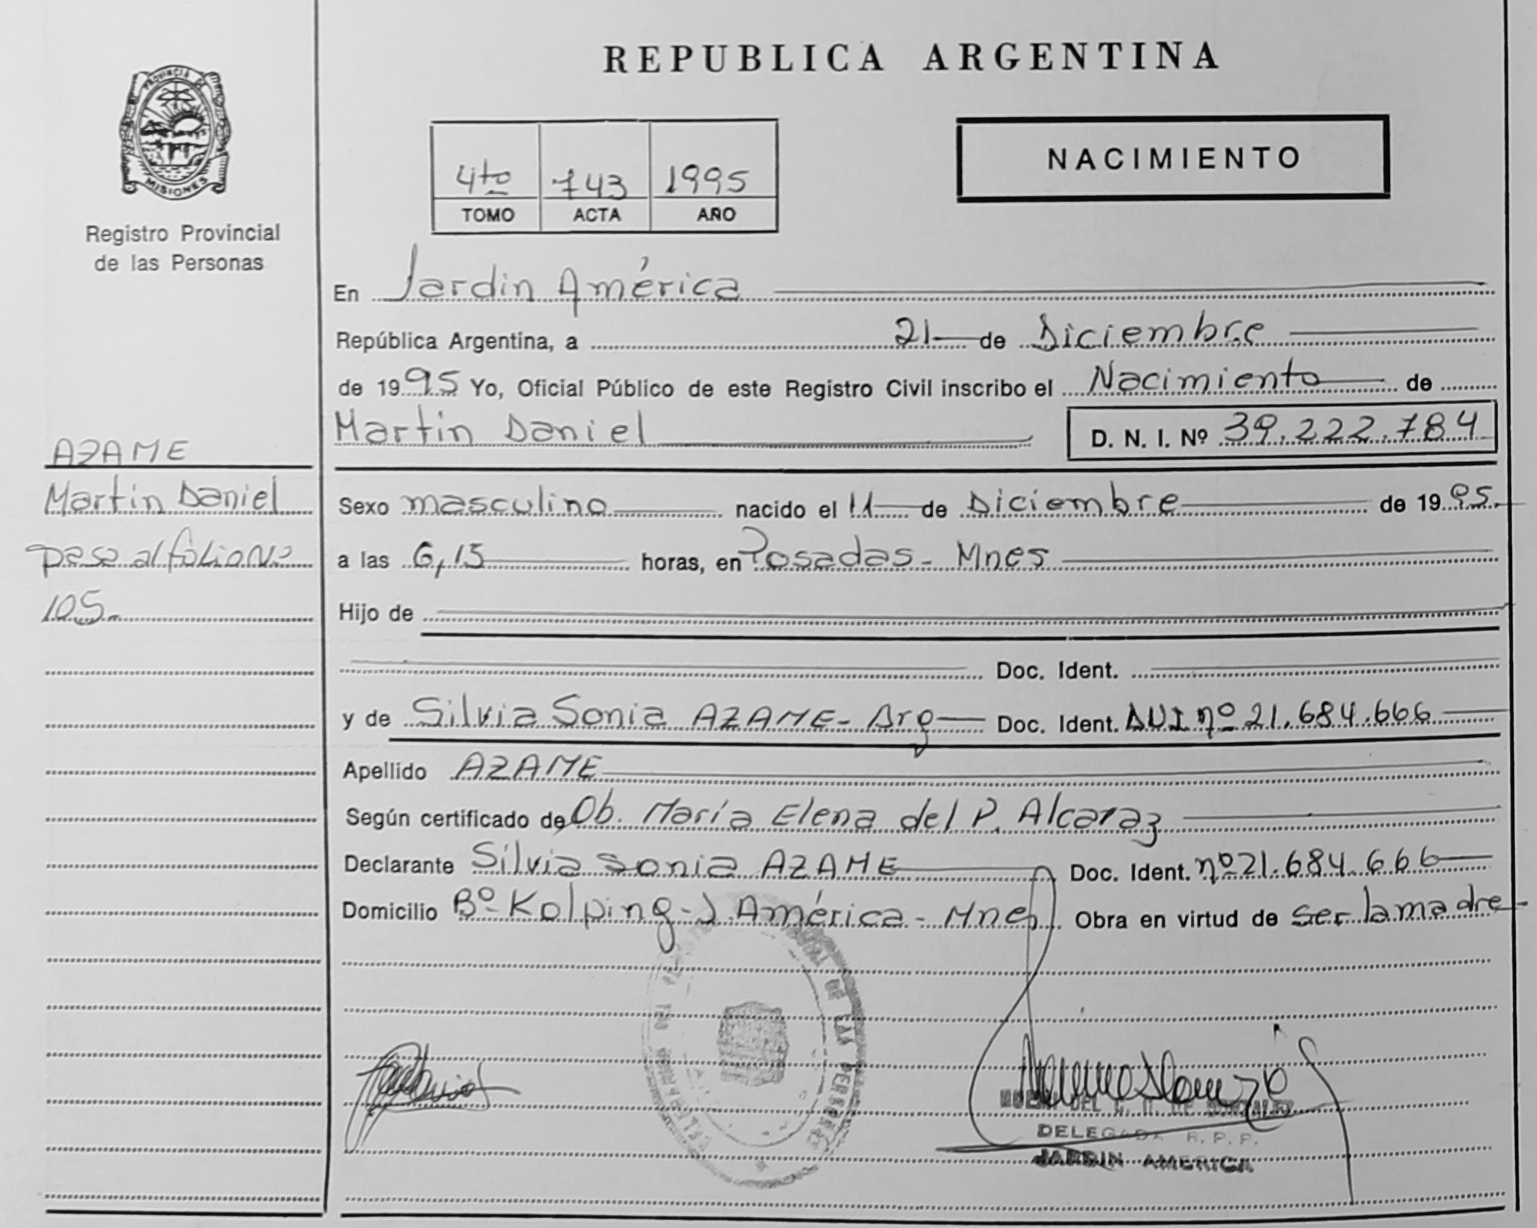 PROVINCIA DE
MISIONES
Registro Provincial
de las Personas
REPUBLICA ARGENTINA
4to 743 1995
TOMO ACTA AÑO
NACIMIENTO
En Jardin América
República Argentina, a 21 de Diciembre
de 1995 Yo, Oficial Público de este Registro Civil inscribo el Nacimiento de
Martin Daniel D. N. I. Nº 39.222.784
AZAME
Martin Daniel
pasa al folio Nº
105.
Sexo masculino nacido el 11 de Diciembre de 1995.
a las 6,15 horas, en Posadas - Mnes
Hijo de
Doc. Ident.
y de Silvia Sonia AZAME - Arg Doc. Ident. DNI nº 21.684.666
Apellido AZAME
Según certificado de Ob. María Elena del P. Alcaraz
Declarante Silvia Sonia AZAME Doc. Ident. nº 21.684.666
Domicilio Bº Kolping - J. América - Mnes Obra en virtud de ser la madre -
DE LAS PERSONAS
DE GONZALEZ
DELEGADA R. P. P.
JARDIN AMERICA